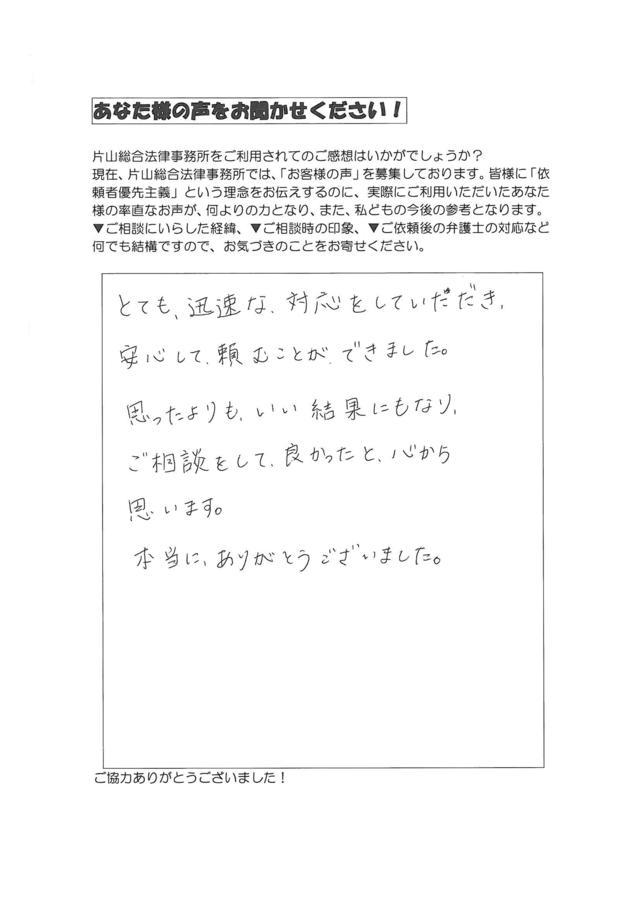 あなた様の声をお聞かせください!
片山総合法律事務所をご利用されてのご感想はいかがでしょうか?
現在、片山総合法律事務所では、「お客様の声」を募集しております。皆様に「依
頼者優先主義」という理念をお伝えするのに、実際にご利用いただいたあなた
様の率直なお声が、何よりの力となり、また、私どもの今後の参考となります。
▼ご相談にいらした経緯、▼ご相談時の印象、▼ご依頼後の弁護士の対応など
何でも結構ですので、お気づきのことをお寄せください。
とても、迅速な、対応をしていただき、
安心して、頼むことが、できました。
思ったよりも、いい結果にもなり、
ご相談をして、良かったと、心から
思います。
本当に、ありがとうございました。
ご協力ありがとうございました!